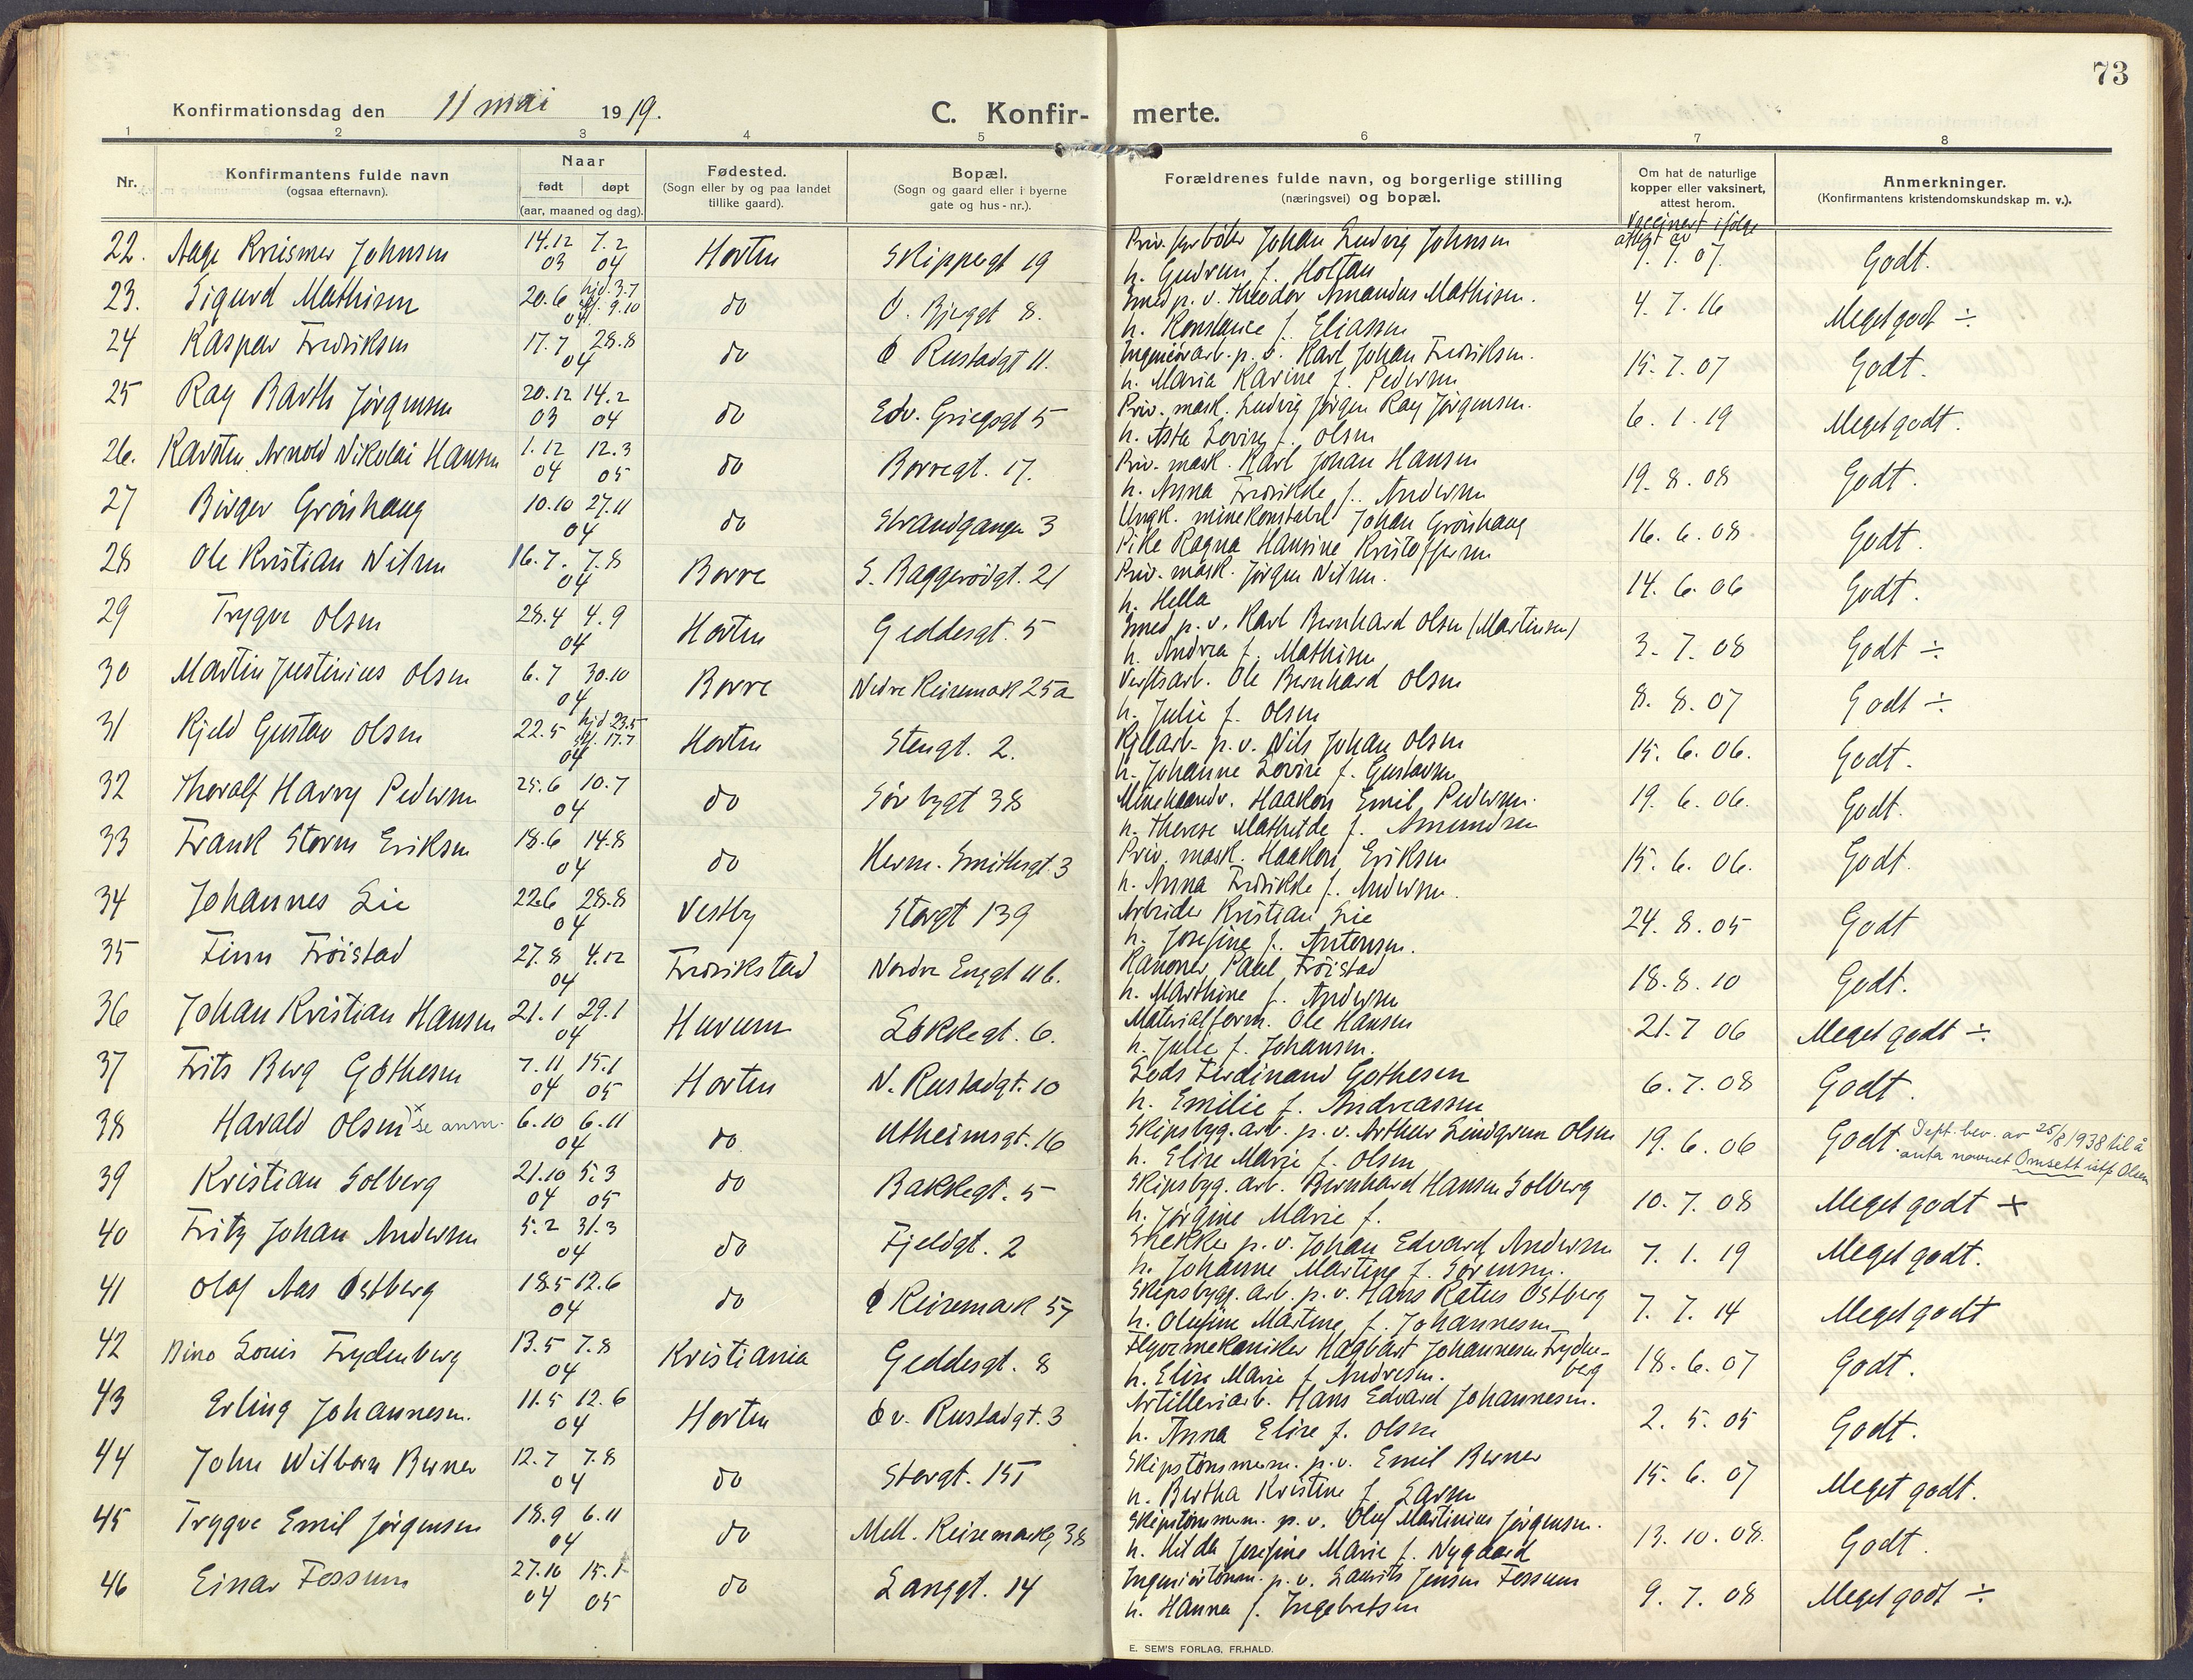 73
Konfirmationsdag den 11 mai 1919.
C. Konfir- merte.
1 2 3 4 5 6 7 8
Nr. Konfirmantens fulde navn (ogsaa efternavn). Naar født døpt (aar, maaned og dag). Fødested. (Sogn eller by og paa landet tillike gaard). Bopæl. (Sogn og gaard eller i byerne gate og hus-nr.). Forældrenes fulde navn, og borgerlige stilling (næringsvei) og bopæl. Om hat de naturlige kopper eller vaksinert, attest herom. Anmerkninger. (Konfirmantens kristendomskundskap m. v.).
Vaccinert ifølge attest av
22. Aage Johnsen 14.12 03 7.2 04 Horten Skippergt 19 Johan Ludvig Johnsen 9.7.07. Godt.
h. Gudrun f. Holtan
23. Sigurd Mathisen 20.6 hjd. 3.7 9.10 04 do 8. Smed p.v. Theodor Amandus Mathisen. 4.7.16 Meget godt ÷
h. Konstance f. Eliassen
24 Kaspar Fredriksen 17.7 28.8 04 do Ø Rustadgt 11. Ingeniörarb. p.v. Karl Johan Fredriksen. 15.7.07 Godt.
h. Maria Karine f. Pedersen
25 Ray Barth Jørgensen 20.12 03 14.2 04 do Edv. Griegsgt 5 Priv. mask. Ludvig Jørgen Ray Jørgensen. 6.1.19 Meget godt.
h. Asta Lovise f. Olsen
26. Karsten Arnold Nikolai Hansen 1.12 04 12.3 05 do Borregt. 17. Priv. mask. Karl Johan Hansen 19.8.08 Godt.
h. Anna Fredrikke f. Andersen
27 Birger Grönhaug 10.10 27.11 04 do Strandgangen 3 Ungk. minekonstabel Johan Grönhaug 16.6.08 Godt.
Pike Ragna Hansine Kristoffersen
28 Ole Kristian Nilsen 16.7. 7.8 04 Borre S. Baggerödgt. 21 Priv. mask. Jörgen Nilsen. 14.6.06 Godt.
h. Hella
29 Trygve Olsen 28.4 4.9 04 Horten Geddesgt. 5 Smed p.v. Karl Bernhard Olsen (Martinsen) 3.7.08 Godt ÷
h. Andrea f. Mathisen
30 Martin Justinius Olsen 6.7 30.10 04 Borre Nedre Keisemark 25a Verftsarb. Ole Bernhard Olsen 8.8.07 Godt ÷
h. Julie f. Olsen
31 Kjeld Gustav Olsen 22.5 hjd 23.5 17.7 04 Horten Stengt. 2. Kjelarb. p.v. Nils Johan Olsen 15.6.06. Godt.
h. Johanne Lovise f. Gustavsen
32 Thoralf Harry Pedersen 25.6 10.7 04 do Sörbygt 38 Minehaandv. Haakon Emil Pedersen. 19.6.06. Godt.
h. Therese Mathilde f. Amundsen
33 Frank Storm Eriksen 18.6 14.8 04 do Herm. Smithsgt. 3 Priv. mask. Haakon Eriksen 15.6.06. Godt.
h. Anna Fredrikke f. Andersen.
34 Johannes Lie 22.6 28.8 04 Vestby Storgt 139 Arbeider Kristian Lie 24.8.05 Godt
h. Josefine f. Antonsen.
35 Finn Fröistad 27.8 4.12 04 Fredrikstad Nordre Enggt 11b. Kanoner Paul Fröistad 18.8.10 Godt.
h. Marthine f. Andersen
36 Johan Kristian Hansen 21.1 29.1 04 Hurum Løkkegt. 6. Materialform. Ole Hansen 21.7 06 Meget godt ÷
h. Julie f. Johansen.
37 Frits Berg Gøthesen 7.11 04 15.1 05 Horten N. Rustadgt. 10 Lods Ferdinand Gøthesen 6.7.08 Godt.
h. Emilie f. Andreassen
38 Harald Olsen x se anm. 6.10 6.11 04 do Utheimsgt. 16 Skipsbyg. arb. p.v. Arthur Lindgren Olsen 19.6.06 Godt. Dept. bev. av 25/8 1938 til å anta navnet Omsett istf Olsen
h. Elise Marie f. Olsen
39 Kristian Solberg 21.10 04 5.3 05 do Bakkegt. 5 Skipsbyg. arb. Bernhard Hansen Solberg 10.7.08 Meget godt +
h. Jörgine Marie f.
40 Fritz Johan Andersen 5.2 31.3 04 do Fjeldgt. 2 Snekker p.v. Johan Edvard Andersen 7.1.19 Meget godt.
h. Johanne Martine f. Sörensen.
41 Olaf Aas Østberg 18.5 12.6 04 do Ø Keisemark 57 Skipsbygg. arb. p.v. Hans Østberg 7.7.14 Meget godt
h. Olufine Martine f. Johannesen
42 Bino Louis Frydenberg 13.5 7.8 04 Kristiania Geddesgt. 8 Flyvemekaniker Hagbart Johannesen Fryden-berg 18.6.07 Godt.
h. Elise Marie f. Andresen.
43 Erling Johannesen. 11.5 12.6 04 Horten Øv. Rustadgt. 3 Artilleriarb. Hans Edvard Johannesen. 2.5.05 Godt.
h. Anna Elise f. Olsen
44 John Berner 12.7 7.8 04 do Storgt. Skipstömmerm. p.v. Emil Berner 15.6.07 Meget godt.
h. Bertha Kristine f. Larsen
45 Trygve Emil Jörgensen 18.9 6.11 04 do Mell. Keisemark 38 Skipstömmerm. p.v. Oluf Martinius Jørgensen. 13.10.08. Godt.
h. Hilda Josefine Marie f. Nygaard
46 Einar Fossum 27.10 04 15.1 05 do Langgt. 14 Ingeniörtömm. p.v. Laurits Jensen Fossum 9.7.08 Meget godt ÷
h. Hanna f. Ingebretsen
E. SEM'S FORLAG, FR.HALD.